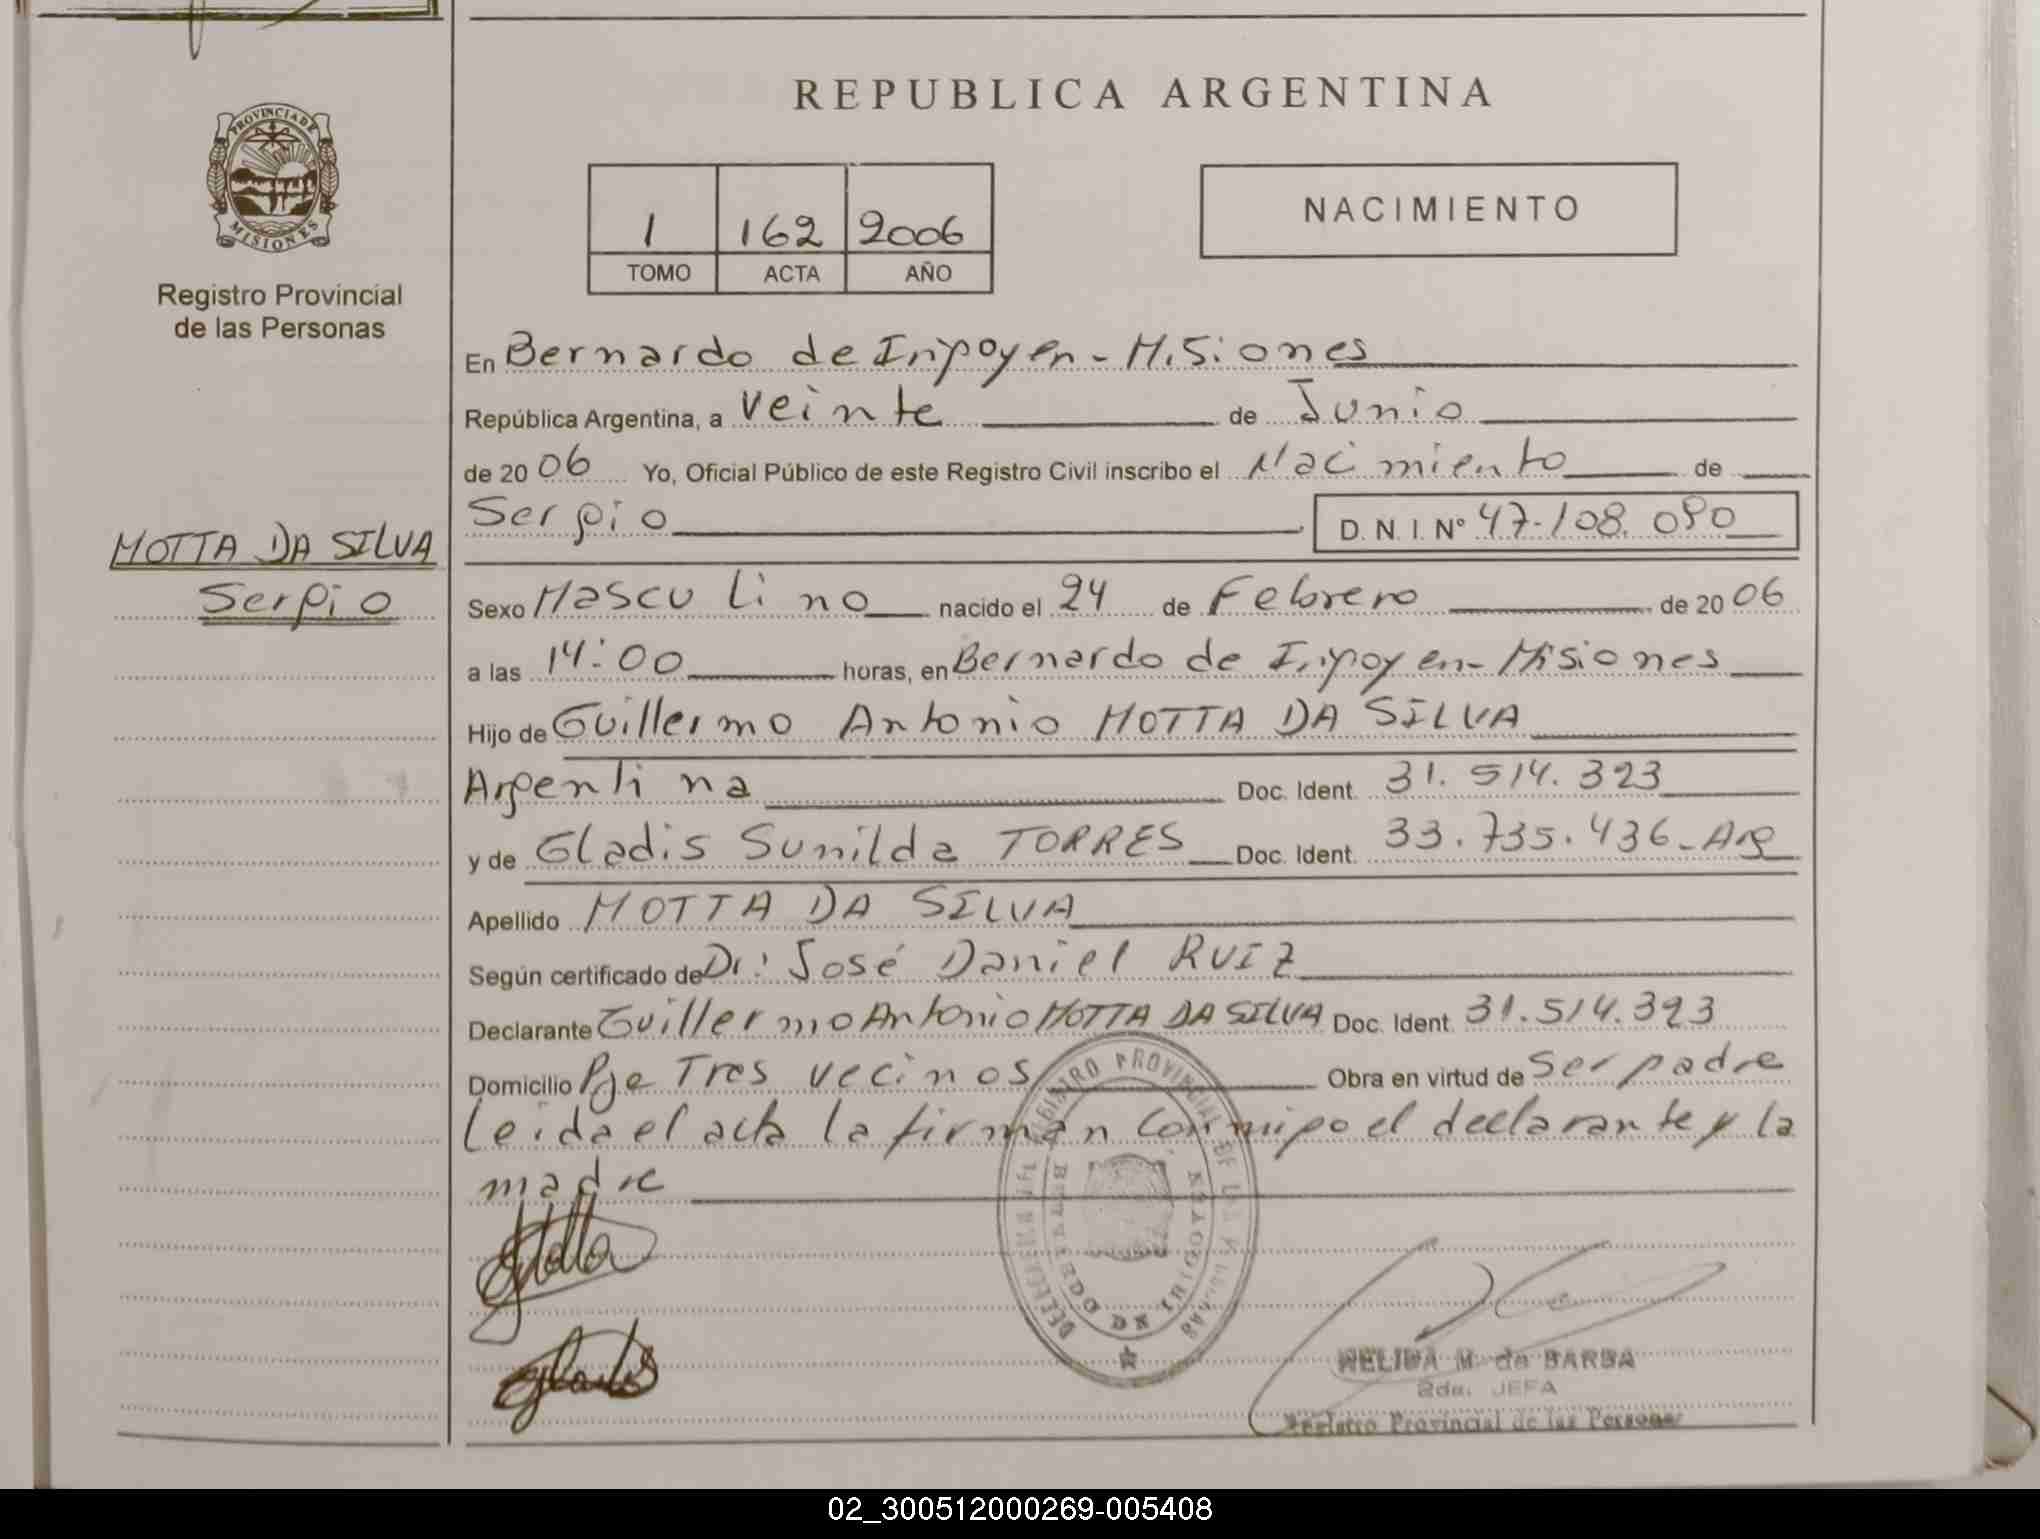 REPUBLICA ARGENTINA
PROVINCIA DE
MISIONES
Registro Provincial
de las Personas
1 162 2006
TOMO ACTA AÑO
NACIMIENTO
En Bernardo de Irigoyen - Misiones
República Argentina, a veinte de Junio
de 2006 Yo, Oficial Público de este Registro Civil inscribo el Nacimiento de
Sergio D. N. I. Nº 47.108.090
MOTTA DA SILVA
Sergio
Sexo Masculino nacido el 24 de Febrero de 2006
a las 14:00 horas, en Bernardo de Irigoyen - Misiones
Hijo de Guillermo Antonio MOTTA DA SILVA
Argentina Doc. Ident. 31.514.323
y de Gladis Sunilda TORRES Doc. Ident. 33.735.436 - Arg
Apellido MOTTA DA SILVA
Según certificado de Dr: José Daniel RUIZ
Declarante Guillermo Antonio MOTTA DA SILVA Doc. Ident. 31.514.323
Domicilio Pje Tres vecinos Obra en virtud de ser padre
Leida el acta la firman conmigo el declarante y la
madre
REGISTRO PROVINCIAL DE LAS
DE IRIGOYEN
NELIDA M. de BARBA
2da. JEFA
Registro Provincial de las Personas
02_300512000269-005408